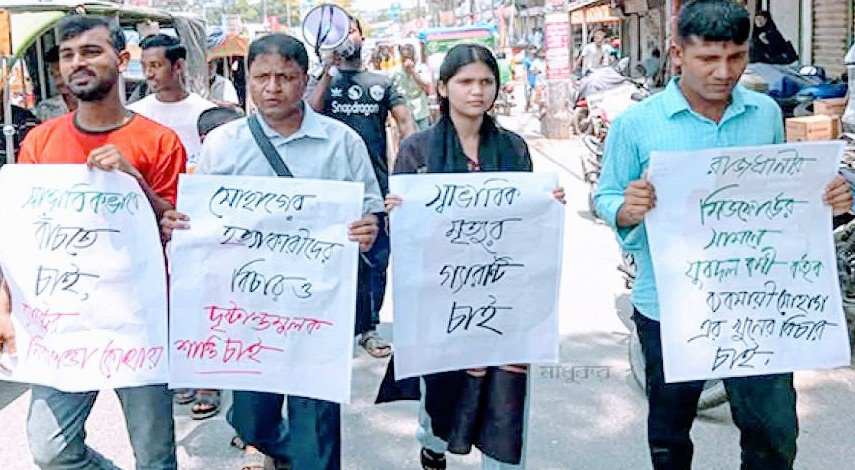 স্বাভাবিকভাবে
বাঁচতে
চাই,
নিরাপত্তা কোথায়
সোহাগের
হত্যাকারীদের
বিচার ও
দৃষ্টান্তমূলক
শাস্তি চাই
স্বাভাবিক
মৃত্যুর
গ্যারান্টি
চাই
রাজধানীর
মিডফোর্ডের
সামনে
যুবদল কর্মী কর্তৃক
ব্যবসায়ী সোহাগ
এর খুনের বিচার
চাই.
Snapdragon
মাধুকর